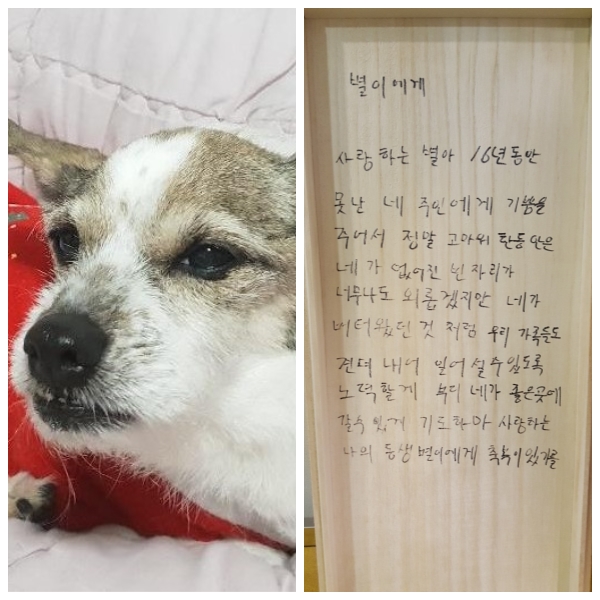 별이에게
사랑하는 별아 16년동안
못난 네 주인에게 기쁨을
주어서 정말 고마워 한동안은
네가 없어진 빈자리가
너무나도 외롭겠지만 네가
버텨왔던 것 처럼 우리 가족들도
견뎌 내어 일어설수있도록
노력할게 부디 네가 좋은곳에
갈수있게 기도하마 사랑하는
나의 동생 별이에게 축복이있기를